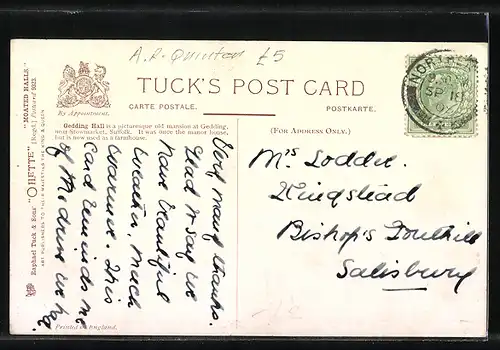 A. R. Quinton £5
TUCK'S POST CARD
CARTE POSTALE.
POSTKARTE.
By Appointment.
Gedding Hall is a picturesque old mansion at Gedding,
near Stowmarket, Suffolk. It was once the manor house,
but is now used as a farmhouse.
(FOR ADDRESS ONLY.)
Raphael Tuck & Sons' "OILETTE" [Regd.] Postcard 9323. "MOATED HALLS"
ART PUBLISHERS TO THEIR MAJESTIES THE KING & QUEEN
Very many thanks.
Glad to say we
have beautiful
weather, much
warmer. This
card reminds me
of
Printed in England.
Mrs Lodder
Kingstead
Bishop's
Salisbury
SP 19